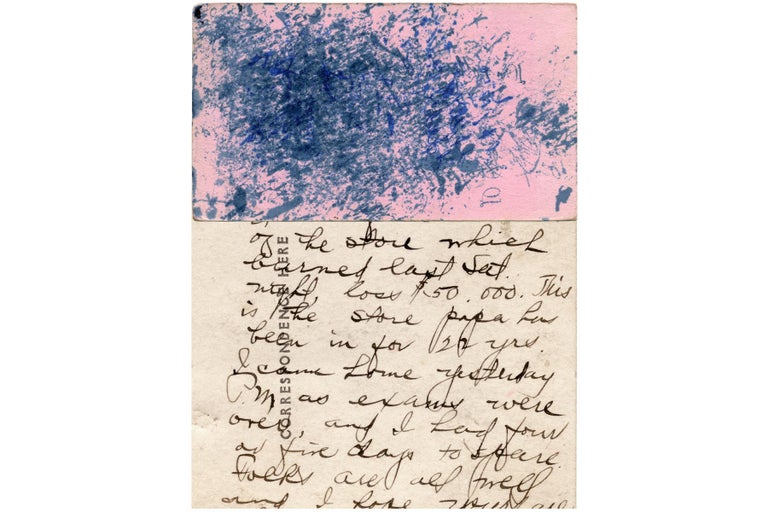 of the store which
burned last Sat.
night, loss $50.000. This
is the store papa has
been in for 22 yrs.
I came home yesterday
P.M. as exams were
over, and I had four
or five days to spare.
Folks are all well
and I hope
CORRESPONDENCE HERE